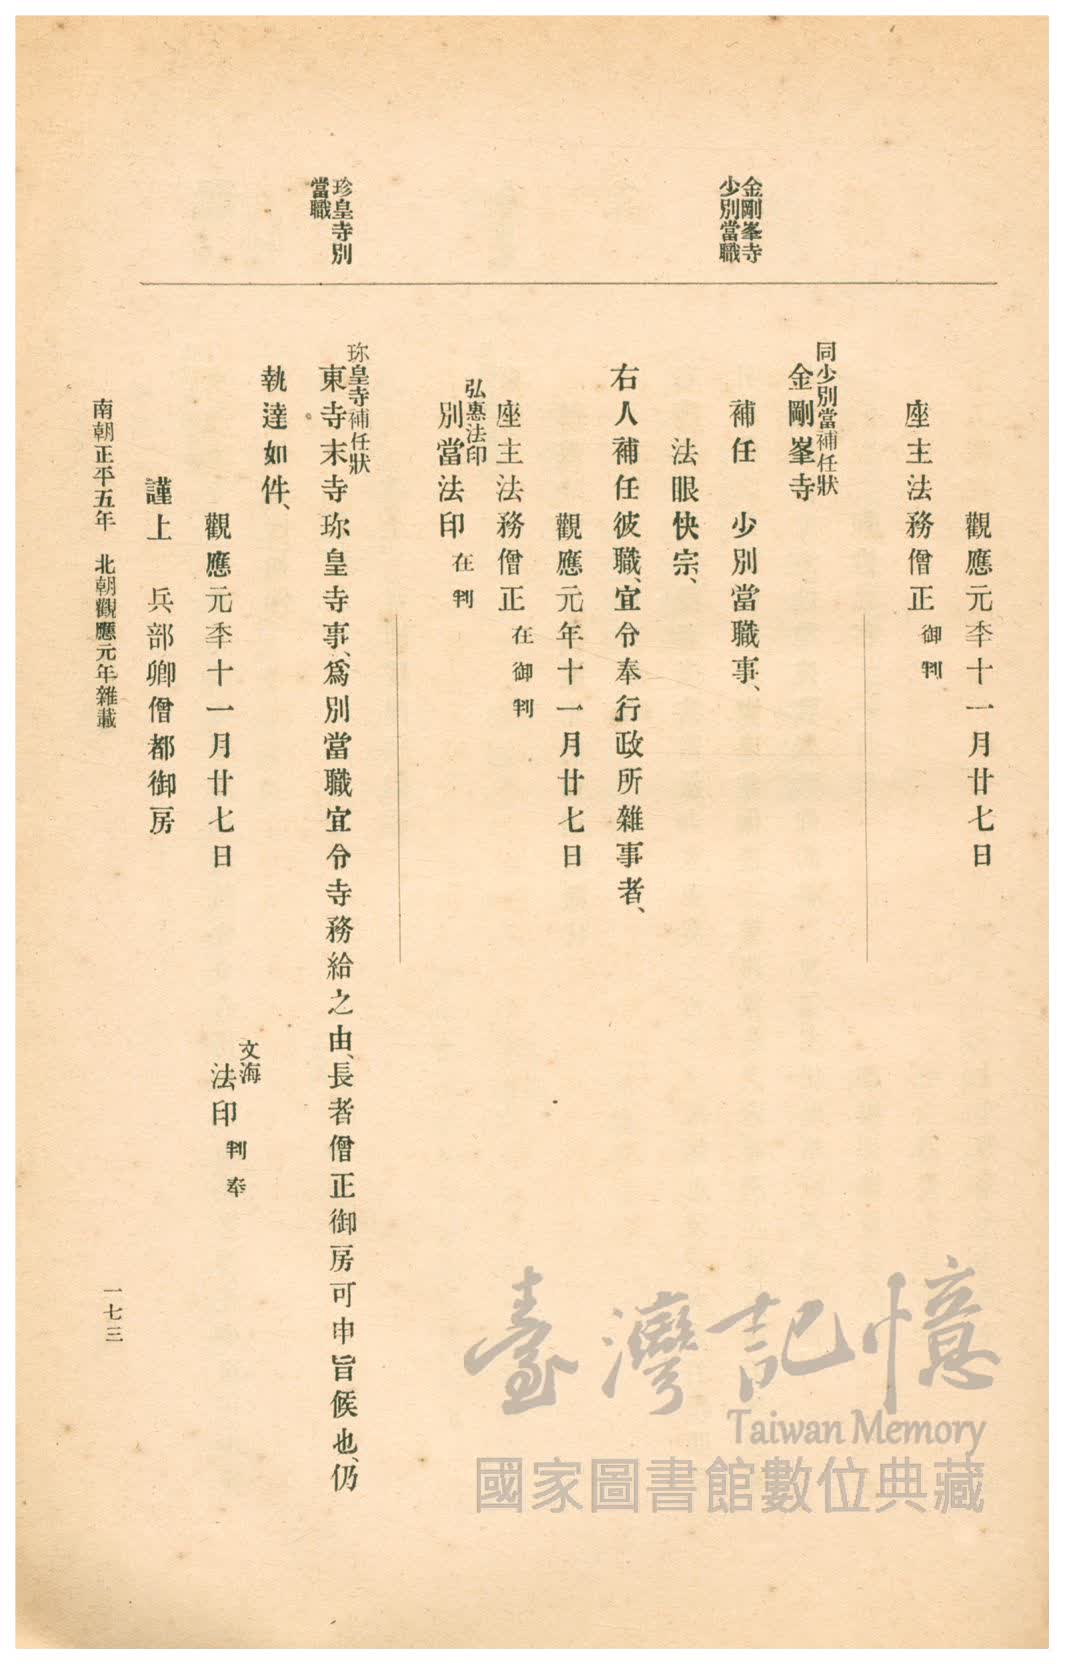 觀應元秊十一月廿七日
座主法務僧正 御判
同少別當補任狀
金剛峯寺
補任 少別當職事、
法眼快宗、
右人補任彼職、宜令奉行政所雜事者、
觀應元年十一月廿七日
座主法務僧正 在御判
弘惠法印
別當法印 在判
珎皇寺補任狀
東寺末寺珎皇寺事、爲別當職宜令寺務給之由、長者僧正御房可申旨候也、仍
執達如件、
觀應元秊十一月廿七日
文海
法印 判奉
謹上 兵部卿僧都御房
金剛峯寺
少別當職
珍皇寺別
當職
南朝正平五年 北朝觀應元年雜載
一七三
臺灣記憶
Taiwan Memory
國家圖書館數位典藏